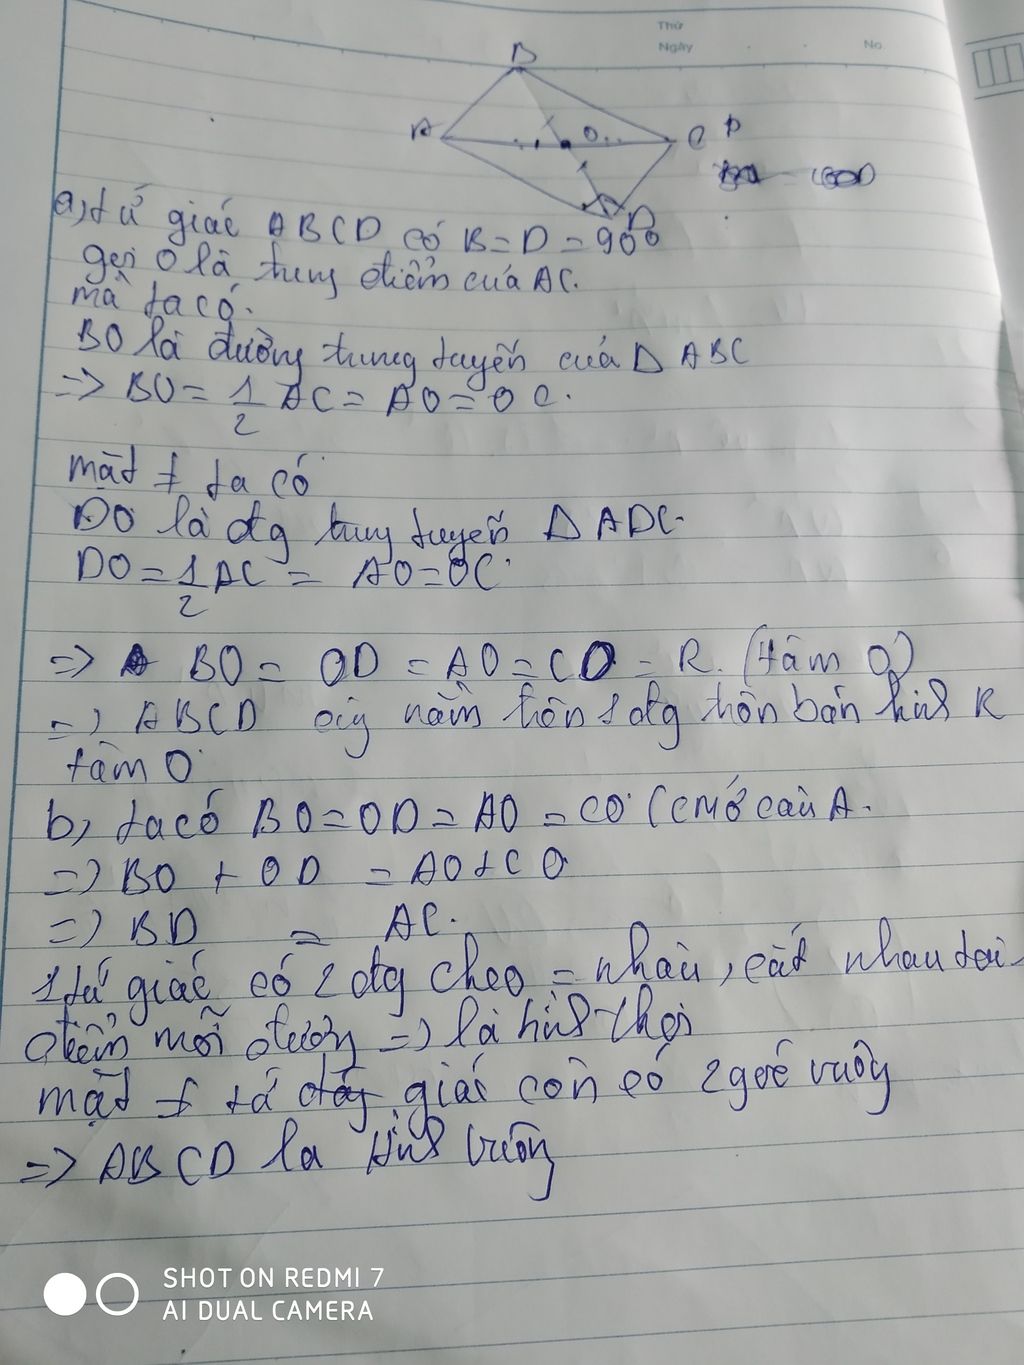 Thứ
Ngày
No
B
A
O
C
D
a, tứ giác ABCD có B=D=90⁰
gọi O là trung điểm của AC.
mà ta có.
BO là đường trung tuyến của Δ ABC
=> BO = 1/2 AC = AO = OC.
mặt ≠ ta có
DO là đg trung tuyến Δ ADC.
DO = 1/2 AC = AO = OC.
=> BO = OD = AO = CO = R. (tâm O)
=> ABCD cùg nằm trên 1 đg tròn bán kính R
tâm O
b, ta có BO=OD=AO=CO (CM ở câu A.
=> BO + OD = AO + CO
=> BD = AC.
1 tứ giác có 2 đg chéo = nhau, cắt nhau tại
điểm mỗi đường => là hình thoi
mặt ≠ tứ giác còn có 2 góc vuông
=> ABCD là hình vuông
SHOT ON REDMI 7
AI DUAL CAMERA